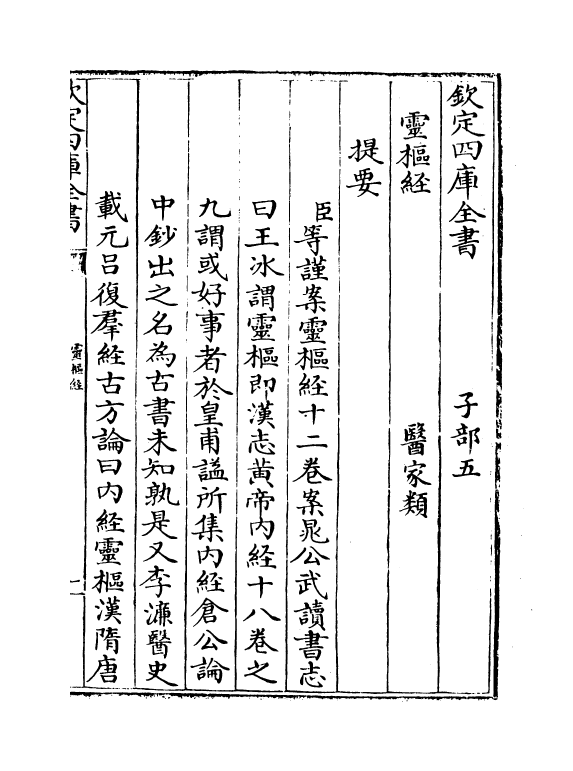 欽定四庫全書　　　子部五
靈樞經　　　　　　醫家類
提要
臣等謹案靈樞經十二卷案晁公武讀書志
曰王冰謂靈樞即漢志黃帝內經十八卷之
九謂或好事者於皇甫謐所集內經倉公論
中鈔出之名為古書未知孰是又李濂醫史
載元呂復羣經古方論曰內經靈樞漢隋唐
欽定四庫全書
靈樞經
一